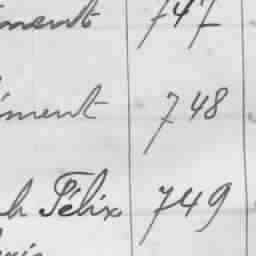 ment 747
ément 748
h Félix 749